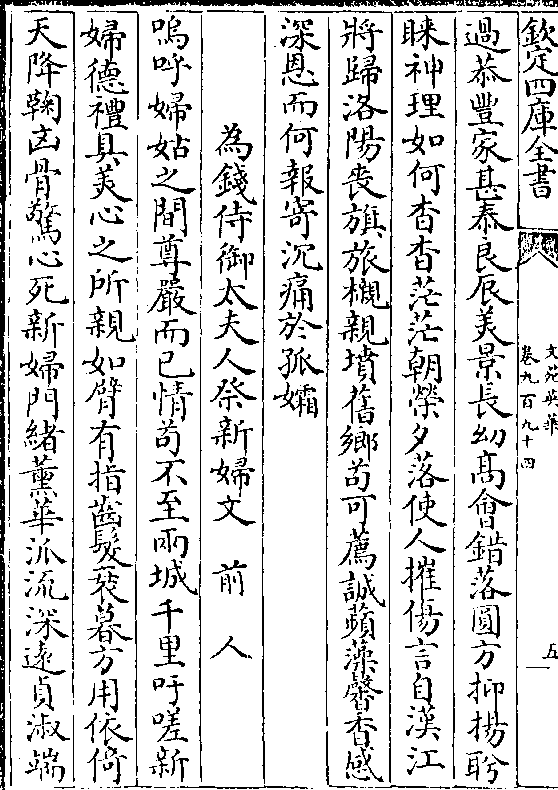 欽定四庫全書
文苑英華
卷九百九十四
五
過恭豐家甚泰良辰美景長幼髙會錯落圓方抑揚盻
睞神理如何杳杳茫茫朝榮夕落使人摧傷言自漢江
將歸洛陽喪旗旅櫬親墳舊鄉苟可薦誠蘋藻馨香感
深恩而何報寄沉痛於孤孀
為錢侍御太夫人祭新婦文 前人
嗚呼婦姑之間尊嚴而已情苟不至兩城千里吁嗟新
婦德禮具美心之所親如臂有指齒髮衰暮方用依倚
天降鞠㐫骨驚心死新婦門緒薰華派流深逺貞淑端